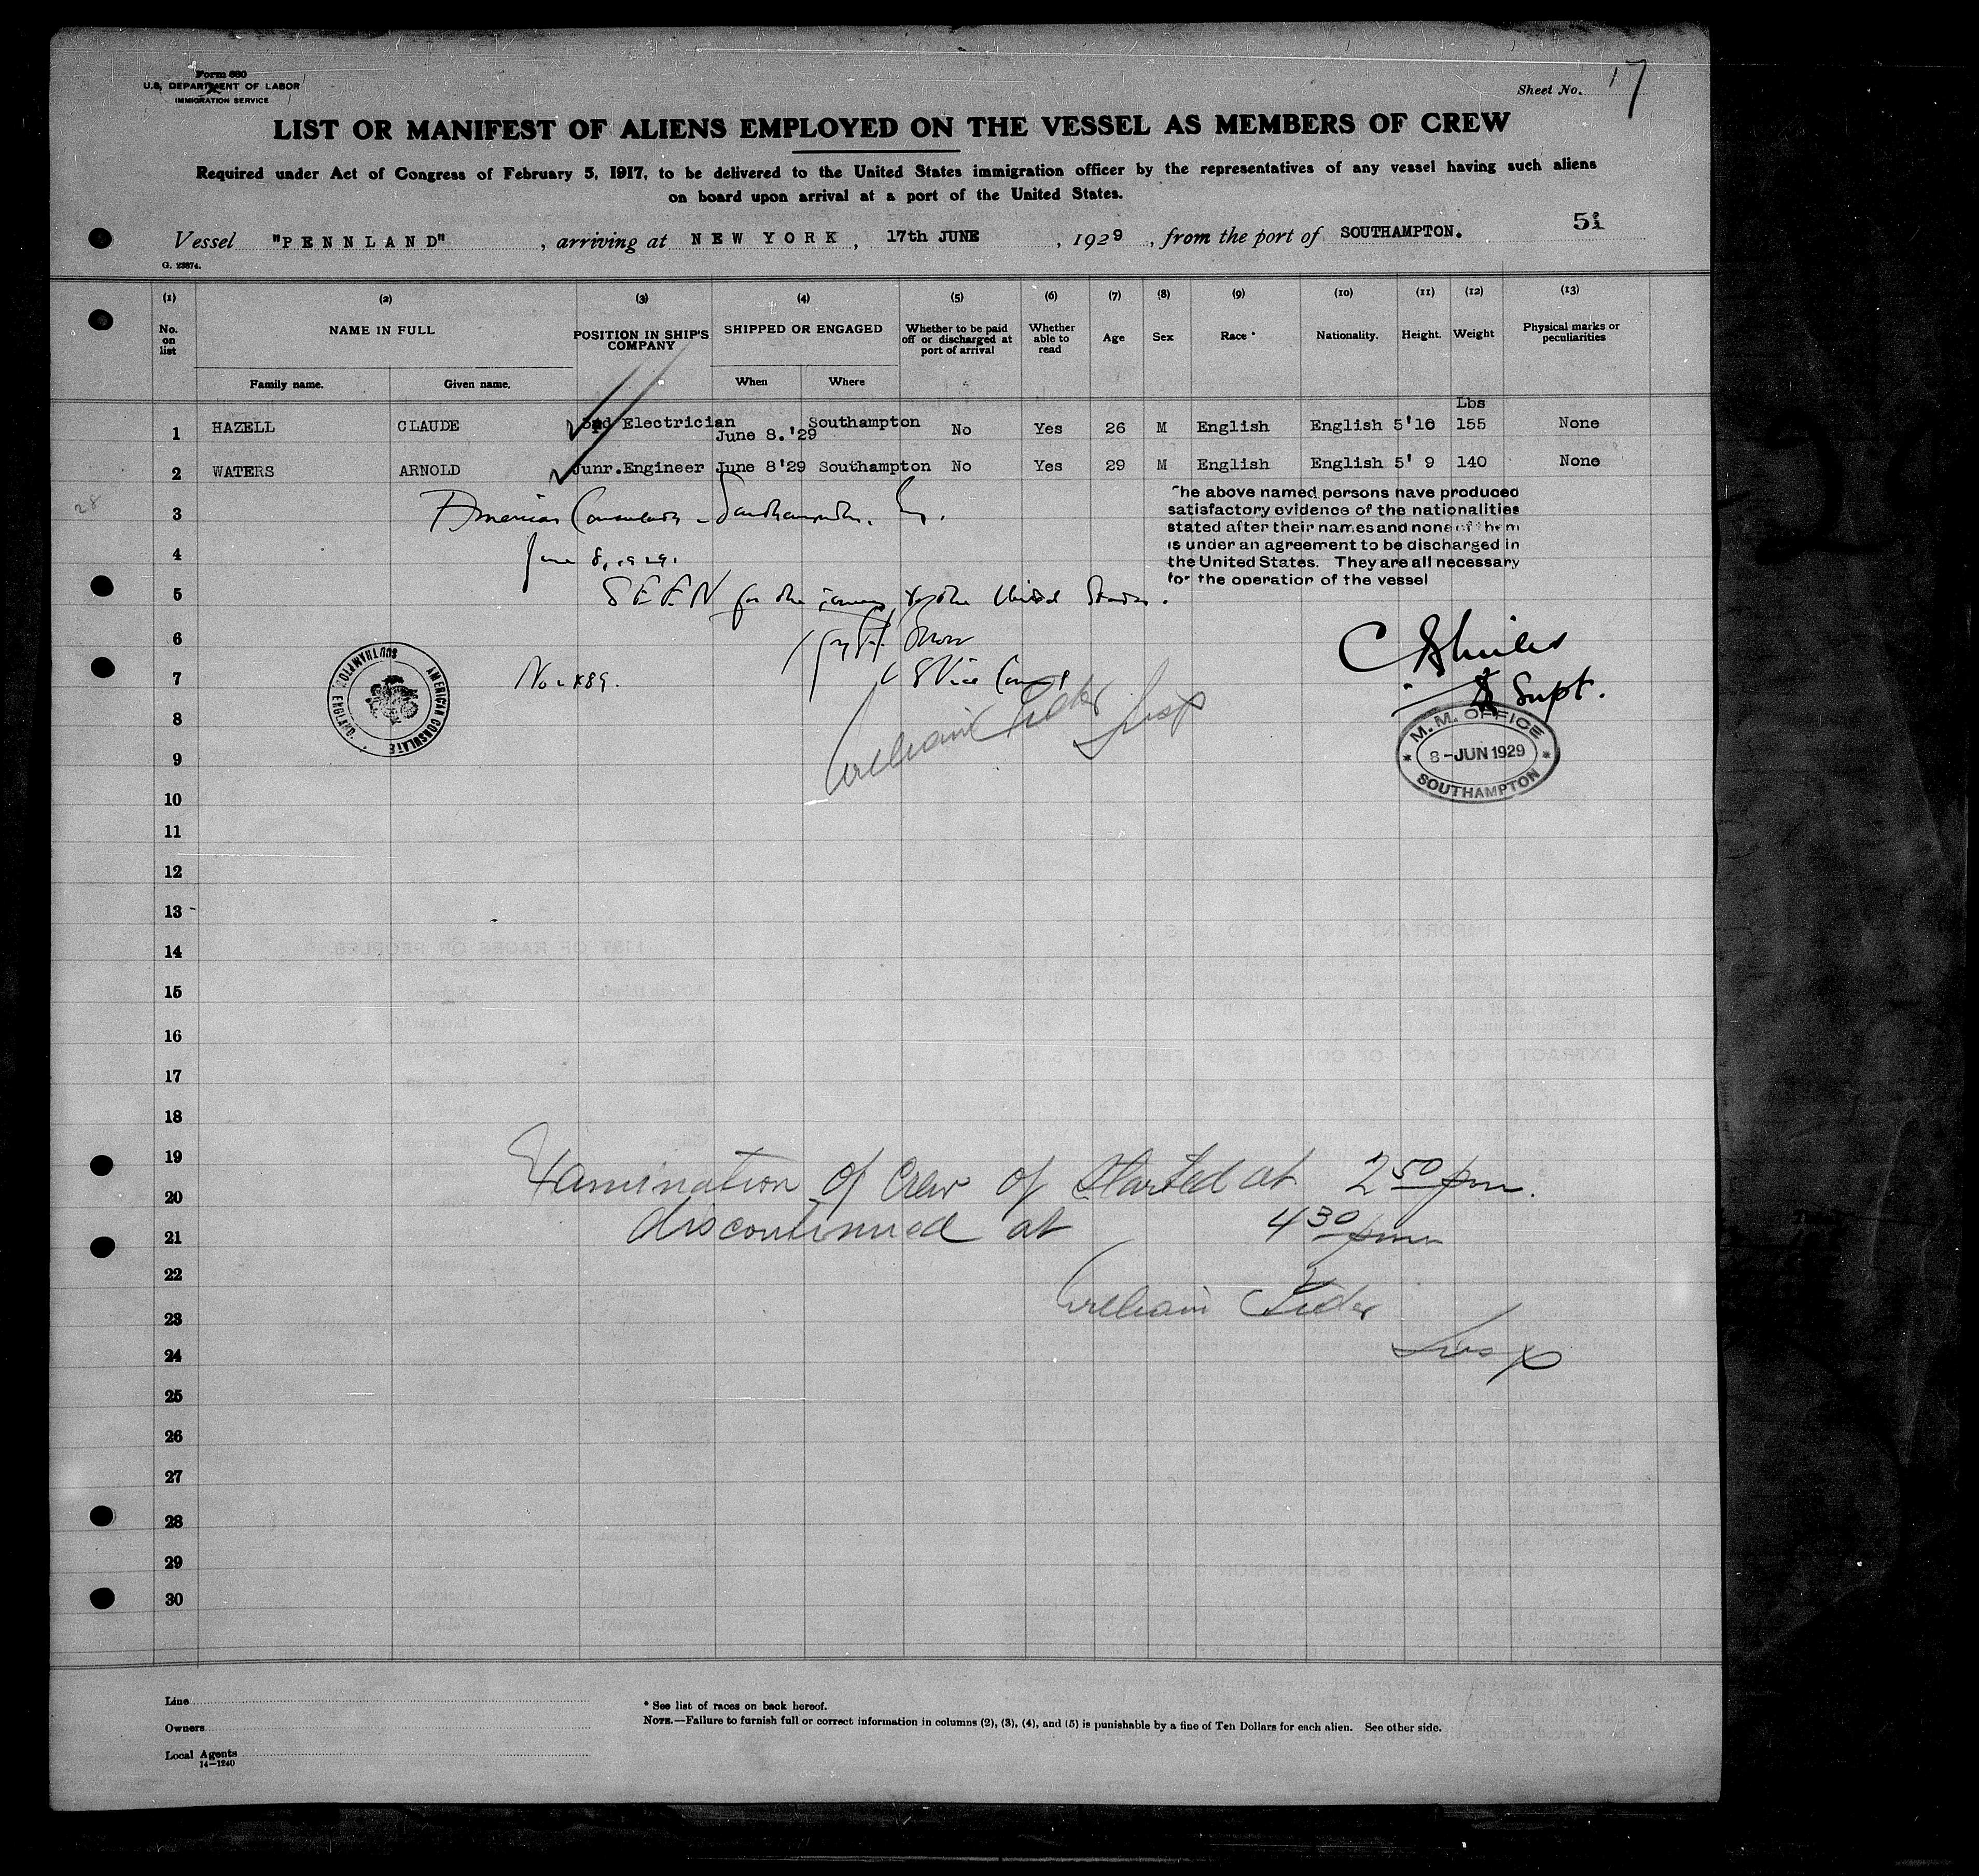 Form 680
U.S. DEPARTMENT OF LABOR
IMMIGRATION SERVICE
Sheet No. 17
LIST OR MANIFEST OF ALIENS EMPLOYED ON THE VESSEL AS MEMBERS OF CREW
Required under Act of Congress of February 5, 1917, to be delivered to the United States immigration officer by the representatives of any vessel having such aliens
on board upon arrival at a port of the United States.
51
Vessel "PENNLAND", arriving at NEW YORK, 17th JUNE, 1929, from the port of SOUTHAMPTON.
G. 23874.
(1) (2) (3) (4) (5) (6) (7) (8) (9) (10) (11) (12) (13)
No. on list NAME IN FULL POSITION IN SHIP'S COMPANY SHIPPED OR ENGAGED Whether to be paid off or discharged at port of arrival Whether able to read Age Sex Race * Nationality. Height. Weight Physical marks or peculiarities
Family name. Given name. When Where
Lbs
1 HAZELL CLAUDE Electrician June 8.'29 Southampton No Yes 26 M English English 5'10 155 None
2 WATERS ARNOLD Junr.Engineer June 8'29 Southampton No Yes 29 M English English 5' 9 140 None
28
The above named persons have produced
satisfactory evidence of the nationalities
stated after their names and none of them
is under an agreement to be discharged in
the United States. They are all necessary
for the operation of the vessel
3 American Consulate - Southampton, Eng.
4 June 8, 1929.
5 SEEN for the journey to the United States.
6
7 No
US Vice Consul
Supt.
AMERICAN CONSULATE
SOUTHAMPTON, ENGLAND
William Insp
M.M. OFFICE
8-JUN 1929
SOUTHAMPTON
8
9
10
11
12
13
14
15
16
17
18
19
20 Examination of Crew of Started at 2 50 pm.
21 discontinued at 4 30 pm
22
23 William
24 Insp
25
26
27
28
29
30
Line
Owners
Local Agents
14-1240
* See list of races on back hereof.
NOTE.—Failure to furnish full or correct information in columns (2), (3), (4), and (5) is punishable by a fine of Ten Dollars for each alien. See other side.